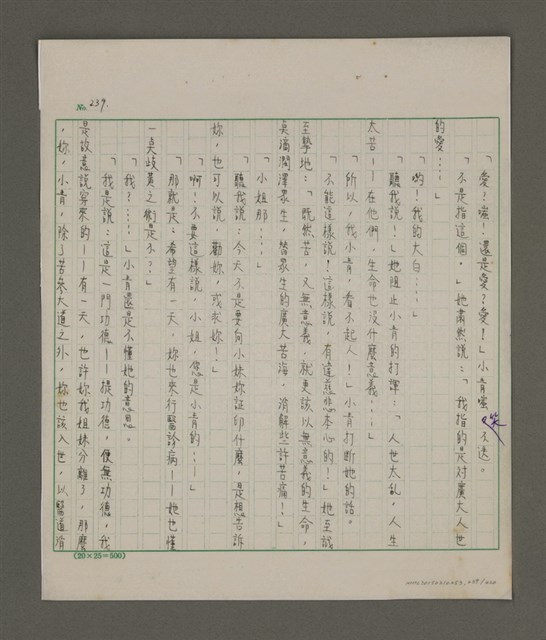 No. 239.
「愛？嗤！還是愛？愛！」小青嗤笑不迭。
「不是指這個。」她肅然說：「我指的是对廣大人世
的愛⋯⋯」
「喲！我的大白⋯⋯」
「聽我說！」她阻止小青的打諢：「人世太乱，人生
太苦——在他們，生命也没什麼意義⋯⋯」
「所以，我小青，看不起人！」小青打断她的話。
「不能這樣說！這樣說，有違慈悲本心的！」她至誠
至摯地：「既然苦，又無意義，就更該以無意義的生命，
潤澤眾生，皆眾生的廣大苦海，消解些許苦痛！」
「小姐那⋯⋯」
「聽我說：今天不是要向小妹妳証印什麼，是想告訴
妳，也可以說 勸妳，或求妳！」
「啊！不要這樣說 小姐，您是小青的⋯⋯」
「那就是：希望有一天，妳也來行醫診病——她也懂
一点岐黃之術是不？」
「我？⋯⋯」小青還是不懂她的意思。
「我是說：這是一門功德——提功德，便無功德，我
是故意說穿來的——有一天，也許妳我姐妹分離了，那麼
，妳，小青，除了苦來大道之外，妳也該入世，以醫道濟
(20×25=500)